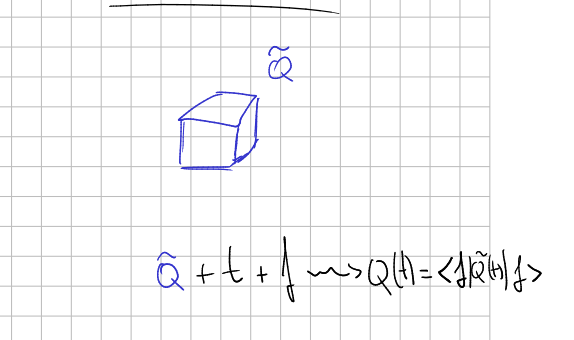 Q̃
Q̃ + t + f ⇝ Q(t) = <f|Q̃(t)|f>